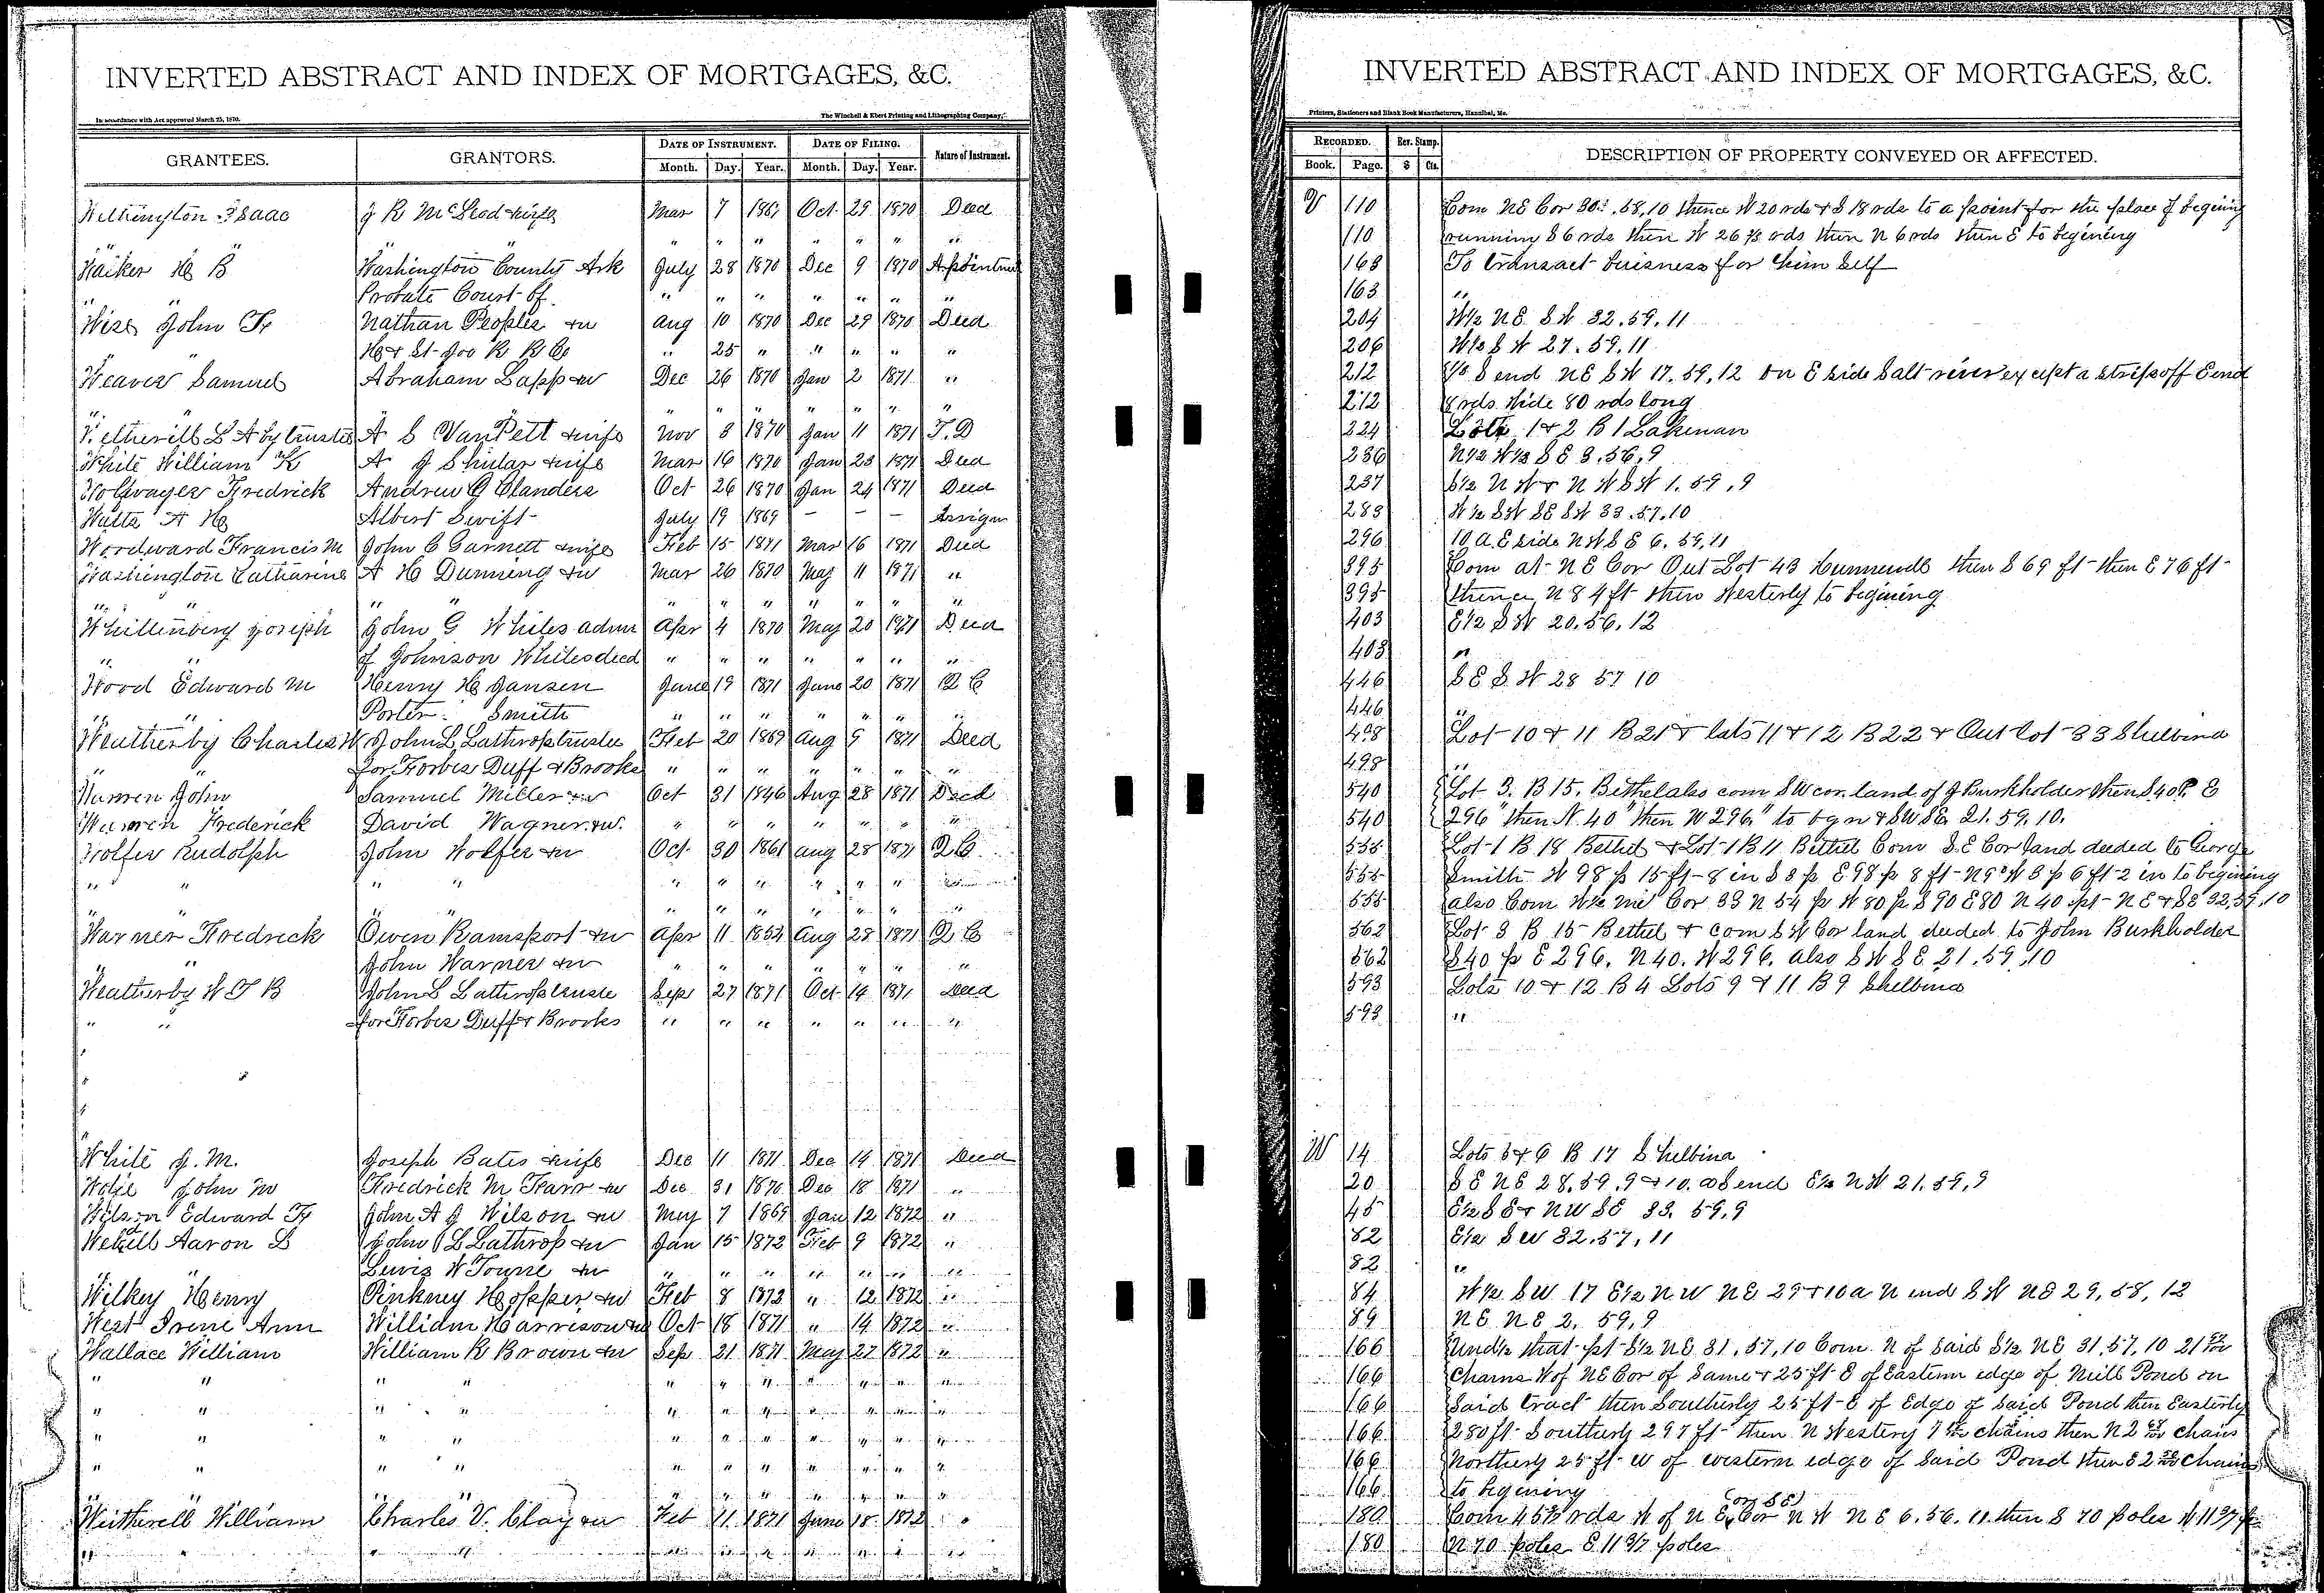 INVERTED ABSTRACT AND INDEX OF MORTGAGES, &C.
In accordance with Act approved March 25, 1870. The Winchell & Ebert Printing and Lithographing Company,
GRANTEES. GRANTORS. DATE OF INSTRUMENT. DATE OF FILING. Nature of Instrument.
Month. Day. Year. Month. Day. Year.
Wethington Isaac J R McLeod & wife Mar 7 1867 Oct 29 1870 Deed
" " " " " " "
Walker H B Washington County Ark July 28 1870 Dec 9 1870
" " Probate Court of " " " " " " "
Wise John F Nathan Peoples & w Aug 10 1870 Dec 29 1870 Deed
" " H & St Joe R R Co " 25 " " " " "
Weaver Samuel Abraham Lapp & w Dec 26 1870 Jan 2 1871 "
" " " " " " " "
Wetherill L A by trustee A S VanPelt & wife Nov 8 1870 Jan 11 1871 T.D
White William K A J Shular & wife Mar 16 1870 Jan 23 1871 Deed
Fredrick Andrew G Clanders Oct 26 1870 Jan 24 1871 Deed
Waltz A H Albert Swift July 19 1869 – – – Assign
Woodward Francis M John C Garnett & wife Feb 15 1871 Mar 16 1871 Deed
Washington Catharine A H Dunning & w Mar 26 1870 May 11 1871 "
" " " " " " " " " "
Whittenberg Joseph John G Whiles admr Apr 4 1870 May 20 1871 Deed
" " of Johnson Whiles decd " " " " " " "
Wood Edward M Henry H Jansen June 19 1871 June 20 1871 Q C
" " Porter Smith " " " " " "
Weatherby Charles W John L Lathrop trustee Feb 20 1869 Aug 9 1871 Deed
" " for Forbes Duff & Brooks " " " " " " "
John Samuel Miller & w Oct 31 1846 Aug 28 1871 Deed
Frederick David Wagner & w. " " " " " " "
Wolfer Rudolph John Wolfer & w Oct 30 1861 Aug 28 1871 Q C
" " " " " " " " " "
" " " " " " " " " "
Warner Fredrick Owen Ramsport & w Apr 11 1853 Aug 28 1871 Q C
" " John Warner & w " " " " " " "
Weatherby W T B John L Lathrop trustee Sep 27 1871 Oct 14 1871 Deed
" " for Forbes Duff & Brooks " " " " " " "
White J. M. Joseph Bates & wife Dec 11 1871 Dec 14 1871 Deed
John M Fredrick M & w Dec 31 1870 Dec 18 1871 "
Wilson Edward F John A J Wilson & w May 7 1869 Jan 12 1872 "
Aaron L John L Lathrop & w Jan 15 1872 Feb 9 1872 "
" " Lewis W Towne & w " " " " " " "
Wilkey Henry Pinkney Hopper & w Feb 8 1872 " 12 1872 "
West Irene Ann William Harrison & w Oct 18 1871 " 14 1872 "
Wallace William William R Brown & w Sep 21 1871 May 27 1872 "
" " " " " " " " " " "
" " " " " " " " " " "
" " " " " " " " " " "
" " " " " " " " " " "
" " " " " " " " " " "
Witherell William Charles V. Clay & w Feb 11 1871 June 18 1872 "
" " " " " " " " " "
INVERTED ABSTRACT AND INDEX OF MORTGAGES, &C.
Printers, Stationers and Blank Book Manufacturers, Hannibal, Mo.
RECORDED. Rev. Stamp. DESCRIPTION OF PROPERTY CONVEYED OR AFFECTED.
Book. Page. $ Cts.
V 110 Com NE Cor 30. 58, 10 thence W 20 rds & S 18 rds to a point for the place of begining
110 running S 6 rds then W 26 2/3 rds then N 6 rds then E to begining
163 To transact buisness for him self
163 "
204 W½ NE SW 32. 59. 11
206 W½ SW 27. 59. 11
212 S end NE SW 17. 59, 12 on E side Salt river except a strip off E end
212 8 rds wide 80 rds long
224 Lots 1 & 2 B 1 Lakenan
236 N½ W½ SE 8. 56, 9
237 S½ NW & NW SW 1. 59, 9
283 W½ SW SE SW 33. 57. 10
296 10 a. E side NW SE 6. 59, 11
395 Com at NE Cor Out Lot 43 Hunnewell then S 69 ft then E 76 ft
395 thence N 84 ft then Westerly to begining
403 E½ SW 20. 56. 12
403 "
446 SE SW 28 57 10
446 "
498 Lot 10 & 11 B 21 & lots 11 & 12 B 22 & Out lot 33 Shelbina
498 "
540 Lot 3. B 15. Bethel also com SW cor. land of J Burkholder then S 40 P. E
540 296 " then N. 40 " then W 296 " to bgn & SW SE 21. 59. 10.
555 Lot 1 B 18 Bethel & Lot 1 B 11 Bethel Com S.E Cor land deeded to George
555 Smith W 98 p 15 ft 8 in S 3 p E 98 p 8 ft N 9° W 3 p 6 ft 2 in to begining
555 also Com W½ mi Cor 33 N 54 p W 80 p S 90 E 80 N 40 pt NE & SE 32, 59, 10
562 Lot 3 B 15 Bethel & com SW Cor land deeded to John Burkholder
562 S 40 p E 296. N 40. W 296. also SW SE 21. 59. 10
593 Lots 10 & 12 B 4 Lots 9 & 11 B 9 Shelbina
593 "
W 14 Lots 5 & 6 B 17 Shelbina
20 SE NE 28. 59. 9 & 10. a S end E½ NW 21. 59, 9
45 E½ SE & NW SE 33. 59, 9
82 E½ SW 32. 57, 11
82 "
84 W½ SW 17 E½ NW NE 29 & 10 a N end SW NE 29, 58, 12
89 NE NE 2. 59, 9
166 Und½ that pt S½ NE 31. 57, 10 Com N of said S½ NE 31. 57. 10 21
166 chains W of NE Cor of Same & 25 ft E of Eastern edge of Mill Pond on
166 Said tract then Southerly 25 ft E of Edge of Said Pond then Easterly
166 280 ft Southerly 297 ft then N Westery 7 chains then N 2 chains
166 Northerly 25 ft W of western edge of Said Pond then E 2 chains
166 to begining
180 Com 45 rds W of NE Cor (or SE) NW NE 6. 56. 11 then S 70 poles W 11 3/7 p
180 N 70 poles E 11 3/7 poles